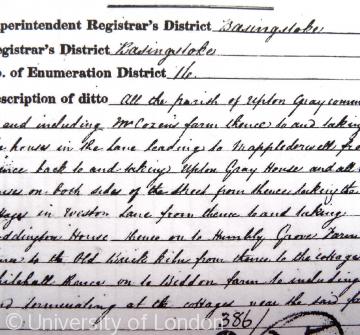 uperintendent Registrar's District Basingstoke
egistrar's District Basingstoke
o. of Enumeration District 16.
escription of ditto All the parish of Upton Gray comm
and including Mr Cozens farm thence to and taking
houses in the Lane leading to Mappledurwell from
thence back to and taking Upton Gray House and all
houses on both sides of the street from thence taking the
cottages in Weston Lane from thence to and taking
Hoddington House thence on to Humbly Grove Farm
to the Old Brick Kiln from thence to the cottages
Whitehall thence on to Biddon farm to including
and terminating at the cottages near the said
386/
© University of London